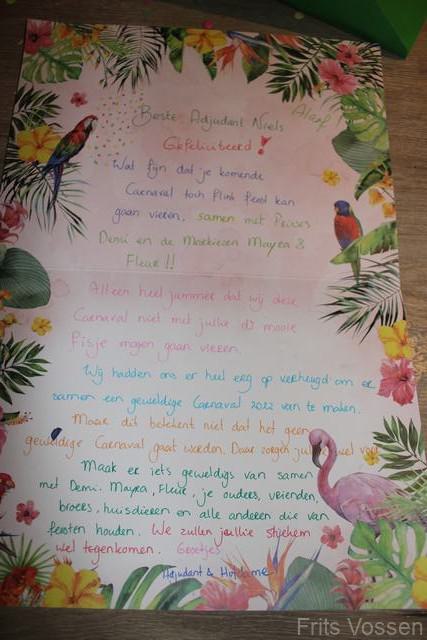 Alaaf
Beste Adjudant Niels
Gefeliciteerd!
Wat fijn dat je komende
Carnaval toch flink feest kan
gaan vieren. samen met Prinses
Demi en de Markiezen Mayra &
Fleur!!
Alleen heel jammer dat wij deze
Carnaval niet met jullie dit mooie
fisje mogen gaan vieren
Wij hadden ons er heel erg op verheugd om er
samen een geweldige Carnaval 2022 van te maken.
Maar dit betekent niet dat het geen
geweldige Carnaval gaat worden. Daar zorgen jullie wel voor
Maak er iets geweldigs van samen
met Demi. Mayra, Fleur, je ouders, vrienden,
broers, huisdieren en alle anderen die van
feesten houden. We zullen jullie stiekem
wel tegenkomen. Groetjes
Adjudant & Hofdame
Frits Vossen